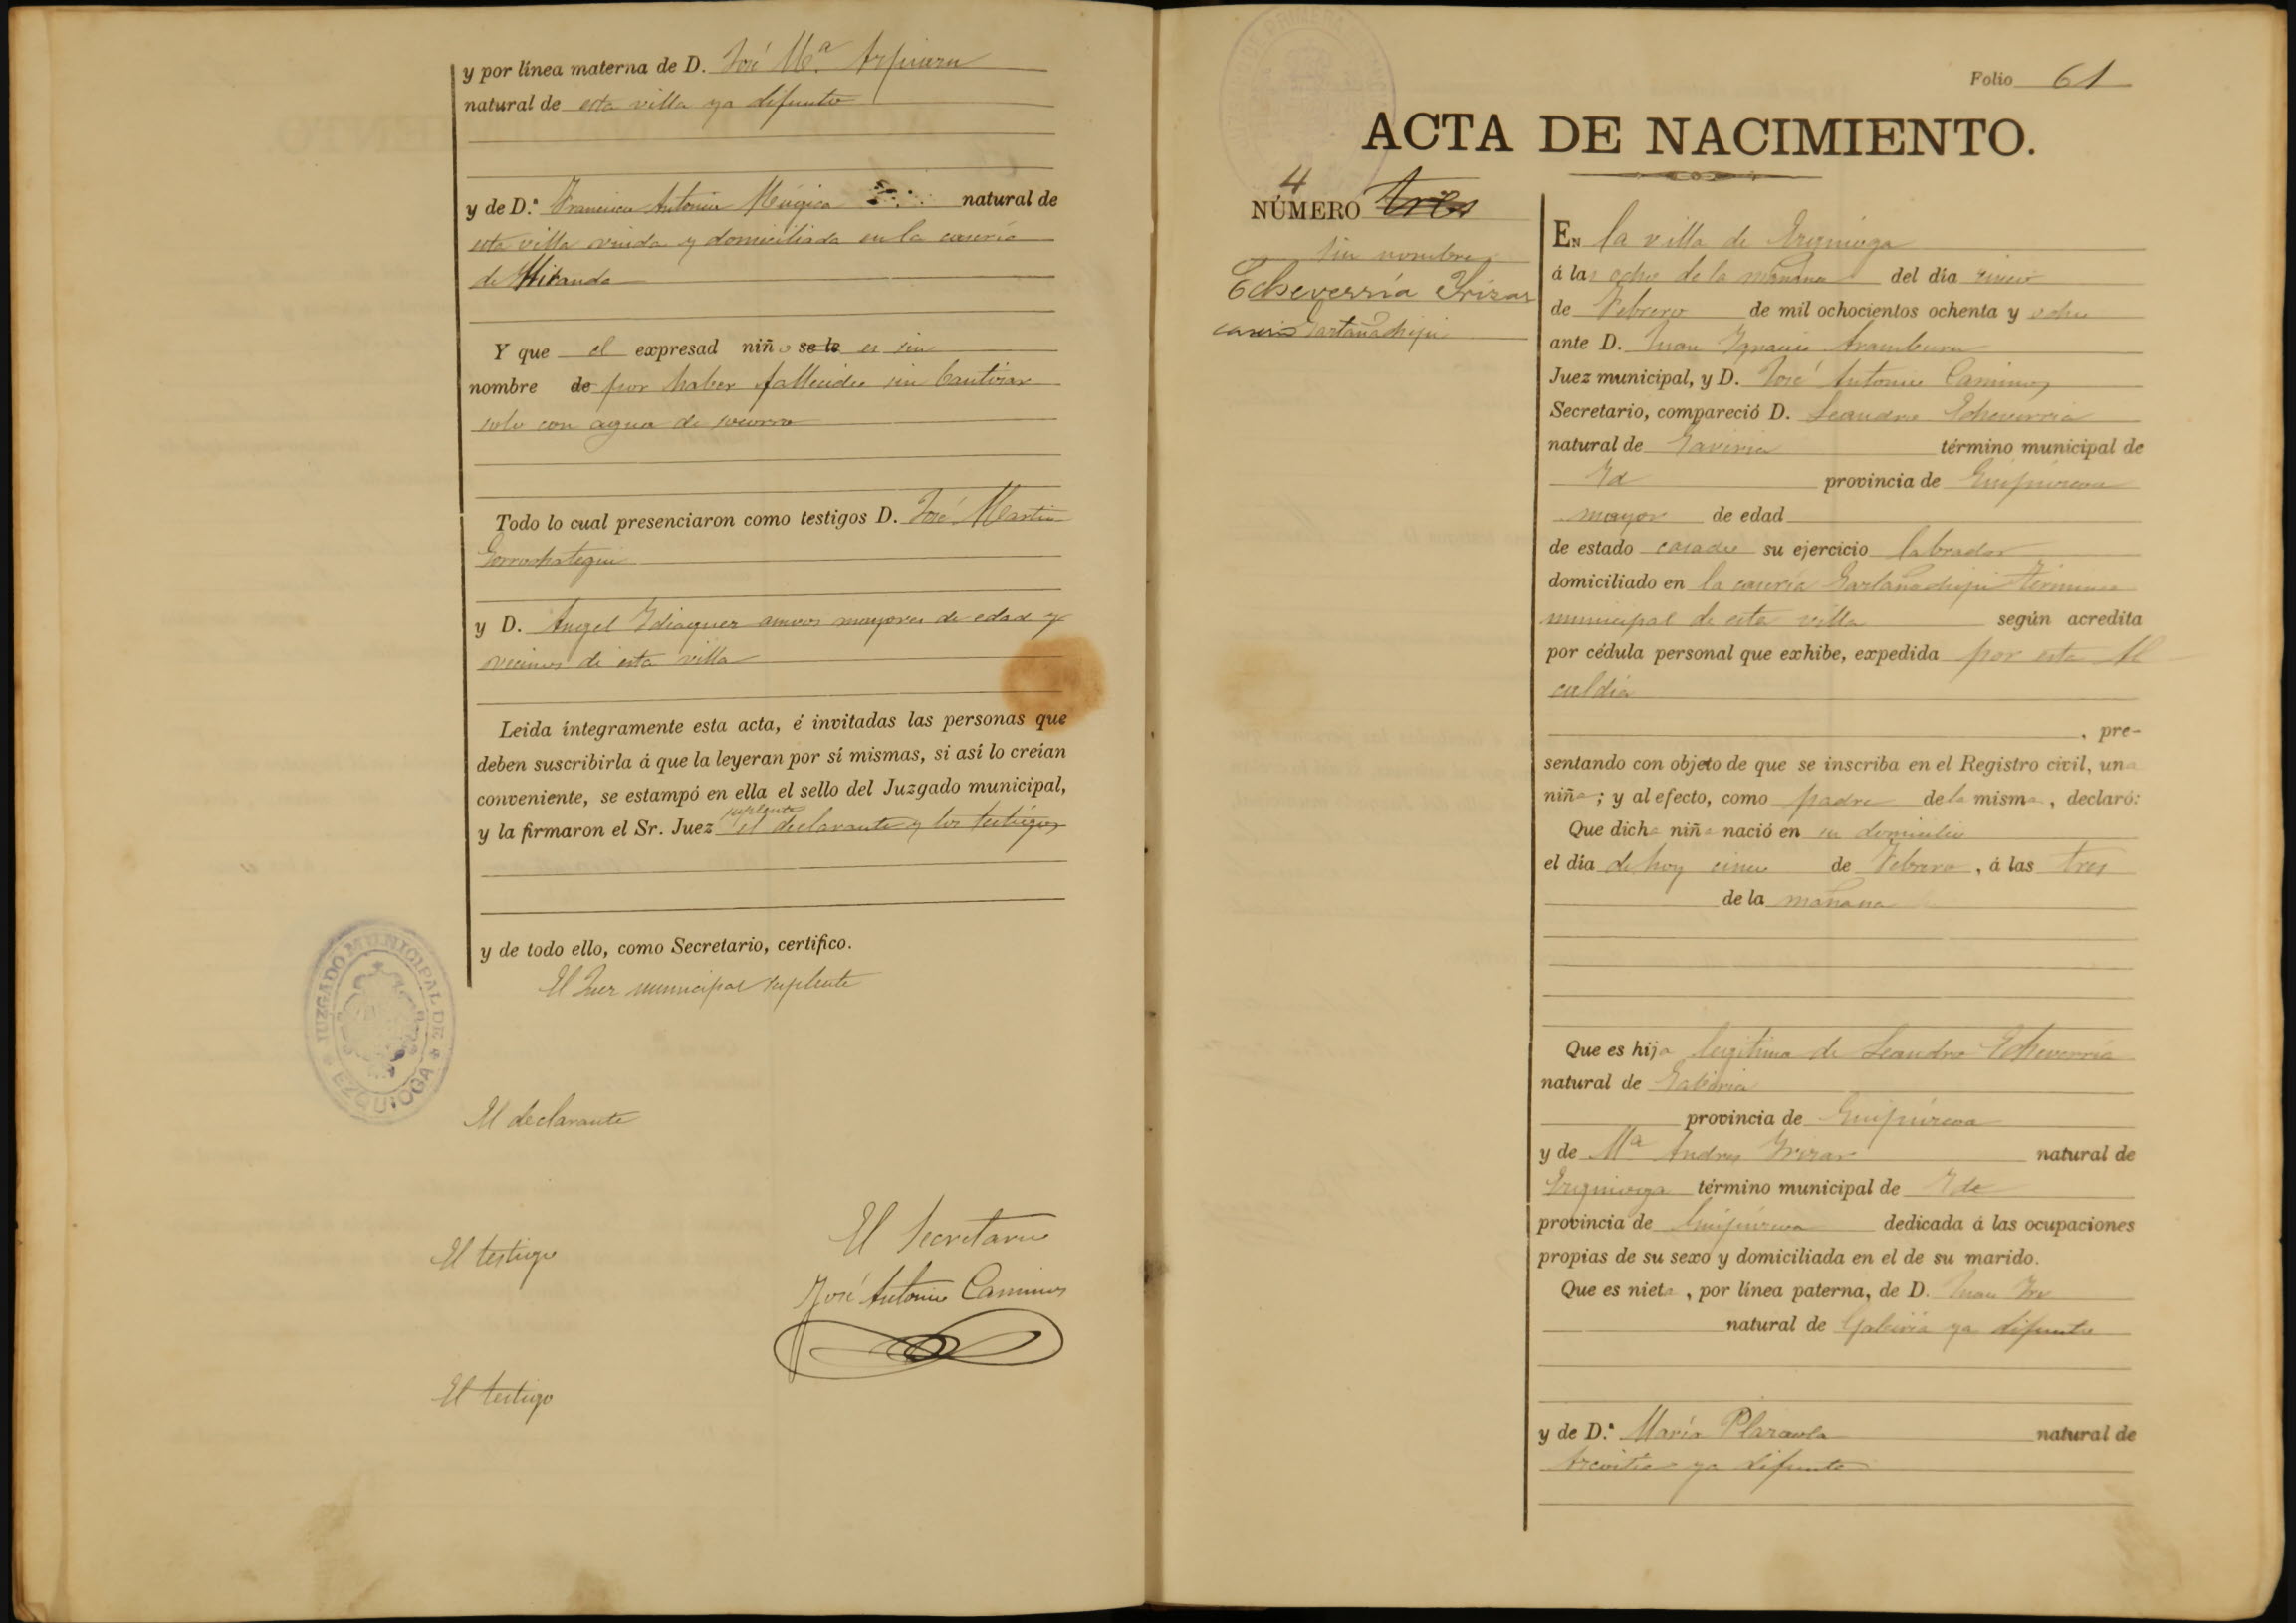 y por línea materna de D. José Mª. Azpiazu
natural de esta villa ya difunto
y de D.ª Francisca Antonia Múgica natural de
esta villa viuda y domiciliada en la casería
de Miranda
Y que el expresad niño se le es sin
nombre de por haber fallecido sin bautizar
solo con agua de socorro
Todo lo cual presenciaron como testigos D. José Martin
Gorrochategui
y D. Angel Ydiaquez amvos mayores de edad y
vecinos de esta villa
Leida íntegramente esta acta, é invitadas las personas que
deben suscribirla á que la leyeran por sí mismas, si así lo creían
conveniente, se estampó en ella el sello del Juzgado municipal,
y la firmaron el Sr. Juez suplente el declarante y los testigos
y de todo ello, como Secretario, certifico.
El Juez municipal suplente
JUZGADO MUNICIPAL DE EZQUIOGA
El declarante
El testigo
El Secretario
José Antonio Caminos
El testigo
Folio 61
ACTA DE NACIMIENTO.
4
NÚMERO tres
Sin nombre
Echeverría Yrízar
casería Gartañachipi
EN la villa de Ezquioga
á las ocho de la mañana del día cinco
de Febrero de mil ochocientos ochenta y ocho
ante D. Juan Ygnacio Aramburu
Juez municipal, y D. José Antonio Caminos
Secretario, compareció D. Leandro Echeverria
natural de Gaviria término municipal de
Yd provincia de Guipúzcoa
mayor de edad
de estado casado su ejercicio labrador
domiciliado en la casería Gartañachipi término
municipal de esta villa según acredita
por cédula personal que exhibe, expedida por esta Al
caldía
, pre-
sentando con objeto de que se inscriba en el Registro civil, una
niña; y al efecto, como padre de la misma, declaró:
Que dicha niña nació en su domicilio
el día de hoy cinco de Febrero, á las tres
de la mañana
Que es hija legitima de Leandro Echeverría
natural de Gabiria
provincia de Guipúzcoa
y de Mª Andres Yrizar natural de
Ezquioga término municipal de Yde
provincia de Guipúzcoa dedicada á las ocupaciones
propias de su sexo y domiciliada en el de su marido.
Que es nieta, por línea paterna, de D. Juan
natural de Gabiria ya difunto
y de D.ª María Plazaola natural de
ya difunta